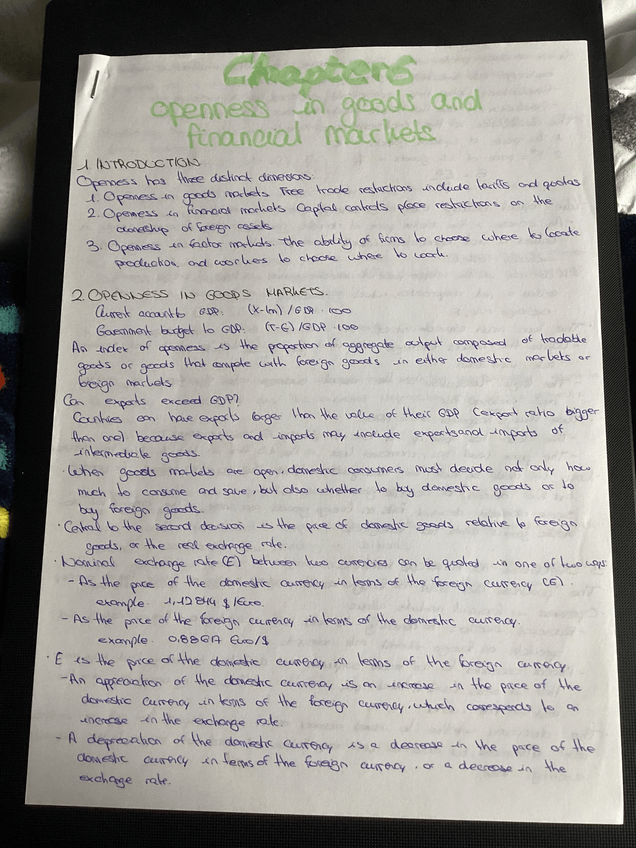 Chapter 6
openness in goods and
financial markets
1. INTRODUCTION
Openness has three distinct dimensions:
1. Openness in goods markets. Free trade restrictions include tariffs and quotas
2. Openness in financial markets. Capital controls place restrictions on the
ownership of foreign assets.
3. Openness in factor markets. The ability of firms to choose where to locate
production and workers to choose where to work.
2. OPENNESS IN GOODS MARKETS.
Current account to GDP: (X-Im)/GDP · 100
Government budget to GDP: (T-G)/GDP · 100
An index of openness is the proportion of aggregate output composed of tradable
goods or goods that compete with foreign goods in either domestic markets or
foreign markets.
Can exports exceed GDP?
Countries can have exports larger than the value of their GDP (export ratio bigger
than one) because exports and imports may include exports and imports of
intermediate goods.
· When goods markets are open, domestic consumers must decide not only how
much to consume and save, but also whether to buy domestic goods or to
buy foreign goods.
· Central to the second decision is the price of domestic goods relative to foreign
goods, or the real exchange rate.
· Nominal exchange rate (E) between two currencies can be quoted in one of two ways:
- As the price of the domestic currency in terms of the foreign currency (E).
example: 1,12844 $/Euro.
- As the price of the foreign currency in terms of the domestic currency.
example: 0,8867 Euro/$
· E is the price of the domestic currency in terms of the foreign currency
- An appreciation of the domestic currency is an increase in the price of the
domestic currency in terms of the foreign currency, which corresponds to an
increase in the exchange rate.
- A depreciation of the domestic currency is a decrease in the price of the
domestic currency in terms of the foreign currency, or a decrease in the
exchange rate.